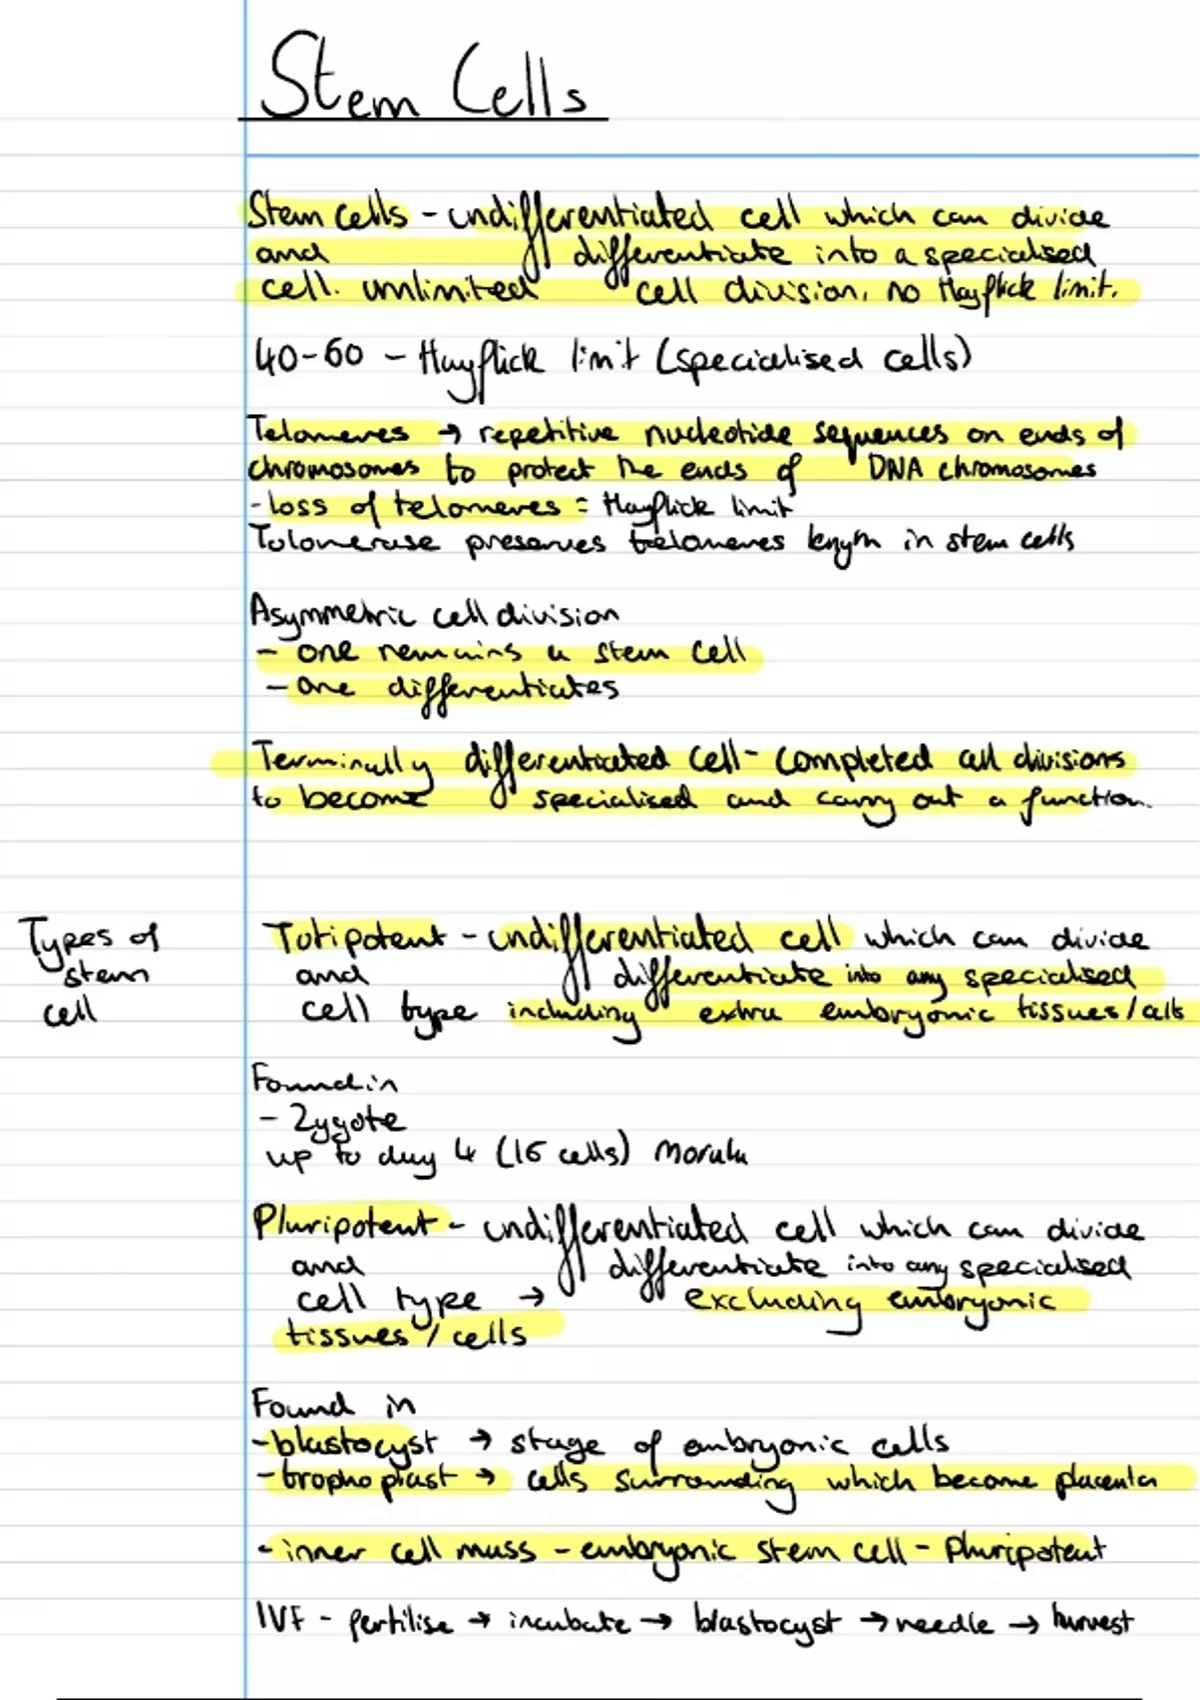 Stem Cells
Stem cells - undifferentiated cell which can divide
and differentiate into a specialised
cell. unlimited cell division, no Hayflick limit.
40-60 - Hayflick limit (specialised cells)
Telomeres → repetitive nucleotide sequences on ends of
chromosomes to protect the ends of DNA chromosomes
- loss of telomeres = Hayflick limit
Tolomerase preserves telomeres length in stem cells
Asymmetric cell division
- one remains a stem cell
- one differentiates
Terminally differentiated cell - completed all divisions
to become specialised and carry out a function.
Types of
stem
cell
Totipotent - undifferentiated cell which can divide
and differentiate into any specialised
cell type including extra embryonic tissues/cells
Found in
- Zygote
up to day 4 (16 cells) Morula
Pluripotent - undifferentiated cell which can divide
and differentiate into any specialised
cell type → excluding embryonic
tissues/cells
Found in
- blastocyst → stage of embryonic cells
- trophoplast → cells surrounding which become placenta
- inner cell mass - embryonic stem cell - Pluripotent
IVF - fertilise → incubate → blastocyst → needle → harvest